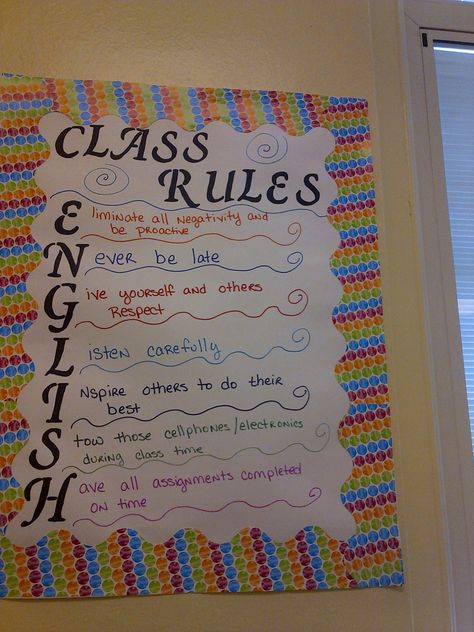 CLASS
RULES
Eliminate all Negativity and
be proactive
Never be late
Give yourself and others
Respect
Listen carefully
INspire others to do their
best
Stow those cellphones/electronics
during class time
Have all assignments completed
on time